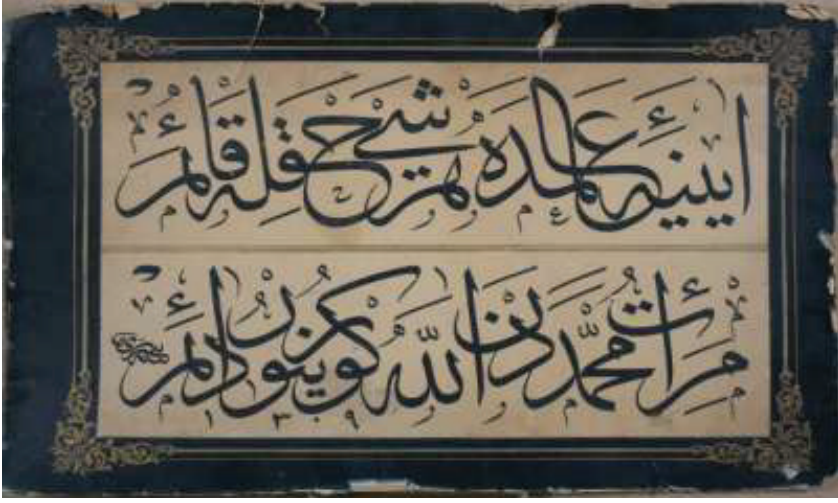 آیینهٔ عالمده هر شی حق‌له قائمدر
مرآت محمددن الله کورینور دائم